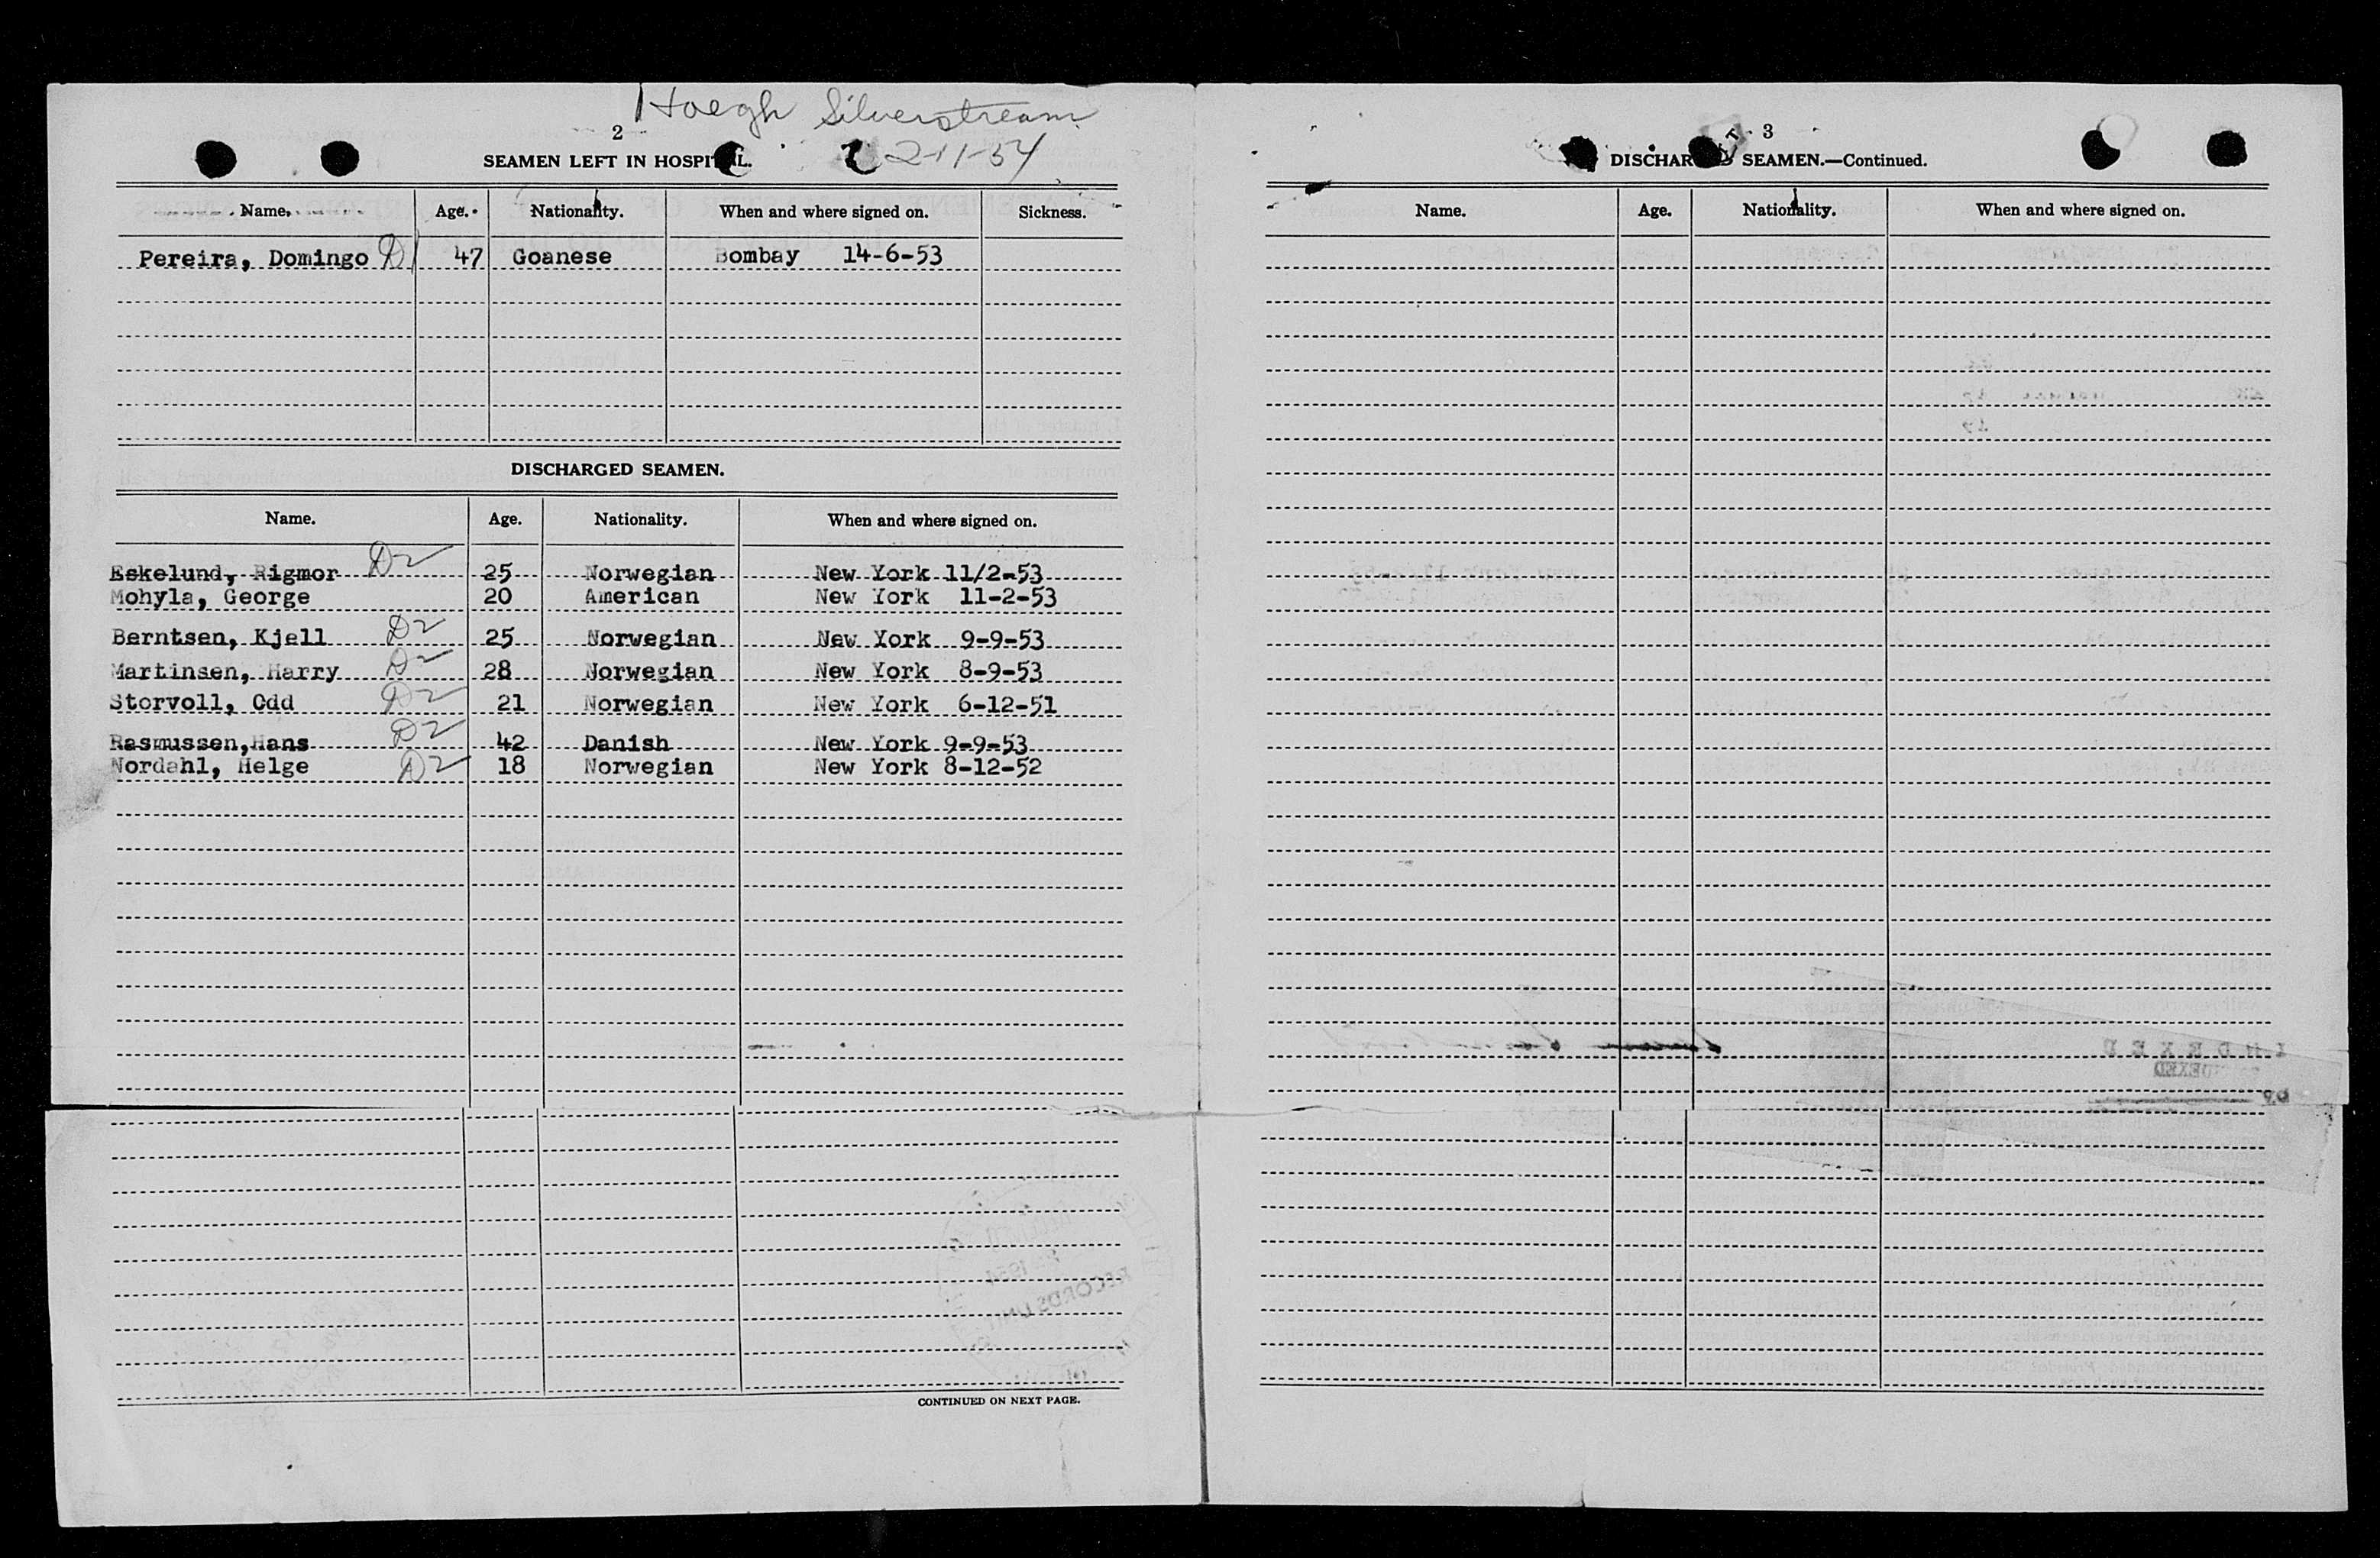 Hoegh Silverstream
2
2-1-54
SEAMEN LEFT IN HOSPITAL.
Name. Age. Nationality. When and where signed on. Sickness.
Pereira, Domingo D1 47 Goanese Bombay 14-6-53
DISCHARGED SEAMEN.
Name. Age. Nationality. When and where signed on.
Eskelund, Rigmor D2 25 Norwegian New York 11/2-53
Mohyla, George 20 American New York 11-2-53
Berntsen, Kjell D2 25 Norwegian New York 9-9-53
Martinsen, Harry D2 28 Norwegian New York 8-9-53
Storvoll, Odd D2 21 Norwegian New York 6-12-51
Rasmussen, Hans D2 42 Danish New York 9-9-53
Nordahl, Helge D2 18 Norwegian New York 8-12-52
CONTINUED ON NEXT PAGE.
3
DISCHARGED SEAMEN.—Continued.
Name. Age. Nationality. When and where signed on.
INDEXED